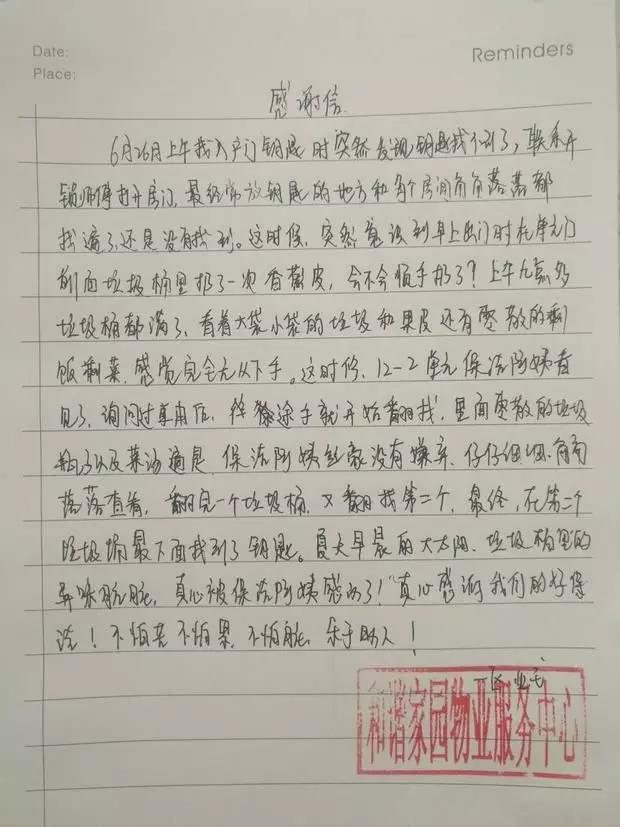 Date:
Reminders
Place:
感谢信
6月26日上午我入户门钥匙时突然发现钥匙找不到了，联系开
锁师傅打开房门，最经常放钥匙的地方和各个房间角角落落都
找遍了还是没有找到。这时候，突然意识到早上出门时在单元门
前面垃圾桶里扔了一次香蕉皮，会不会顺手扔了？上午九点多
垃圾桶都满了，看着大袋小袋的垃圾和果皮还有零散的剩
饭剩菜，感觉完全无从下手。这时候，12-2单元保洁阿姨看
见了，询问过事由后，徒手就开始翻找，里面零散的垃圾
瓶子以及菜汤遍是，保洁阿姨丝毫没有嫌弃，仔仔细细角角
落落查看，翻完一个垃圾桶，又翻找第二个，最终，在第二个
垃圾桶最下面找到了钥匙。夏天早晨的大太阳，垃圾桶里的
异味肮脏，真心被保洁阿姨感动了！真心感谢我们的好保
洁！不怕苦不怕累，不怕脏，乐于助人！
一区业主
和谐家园物业服务中心